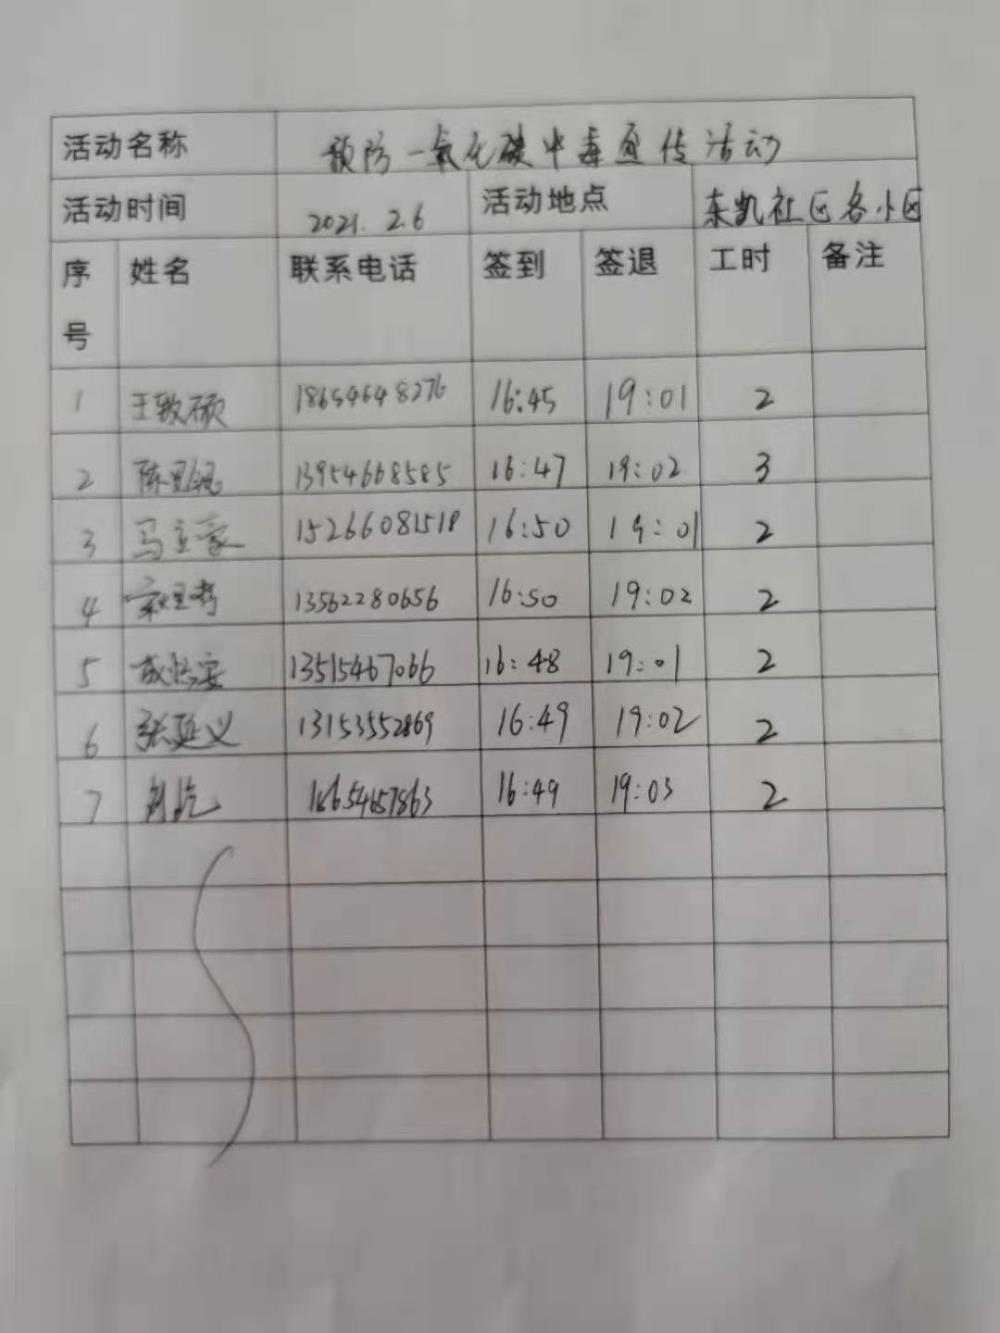 活动名称 预防一氧化碳中毒宣传活动
活动时间 2021. 2.6 活动地点 东凯社区各小区
序号 姓名 联系电话 签到 签退 工时 备注
1 王致硕 18654648276 16:45 19:01 2
2 陈 13954668585 16:47 19:02 3
3 马立豪 15266081518 16:50 19:01 2
4 13562280656 16:50 19:02 2
5 13515467066 16:48 19:01 2
6 张延义 13153552869 16:49 19:02 2
7 16:49 19:03 2